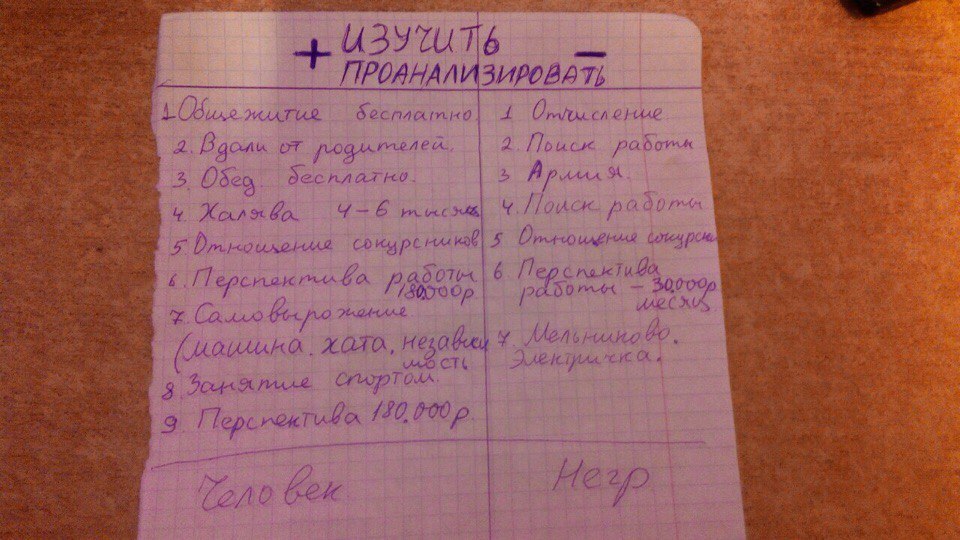 + ИЗУЧИТЬ −
ПРОАНАЛИЗИРОВАТЬ
1 Общежитие бесплатно.
2. Вдали от родителей.
3. Обед бесплатно.
4 Халява 4-6 тысяч
5 Отношение сокурсников
6. Перспектива работы
180.000р
7. Самовырожение
(машина. хата. независи
мость
8 Занятие спортом.
9 Перспектива 180.000р.
Человек
1 Отчисление
2. Поиск работы
3 Армия.
4. Поиск работы
5 Отношение сокурсн
6 Перспектива
работы - 30.000р
месяц
7 Мельниково.
Электричка.
Негр